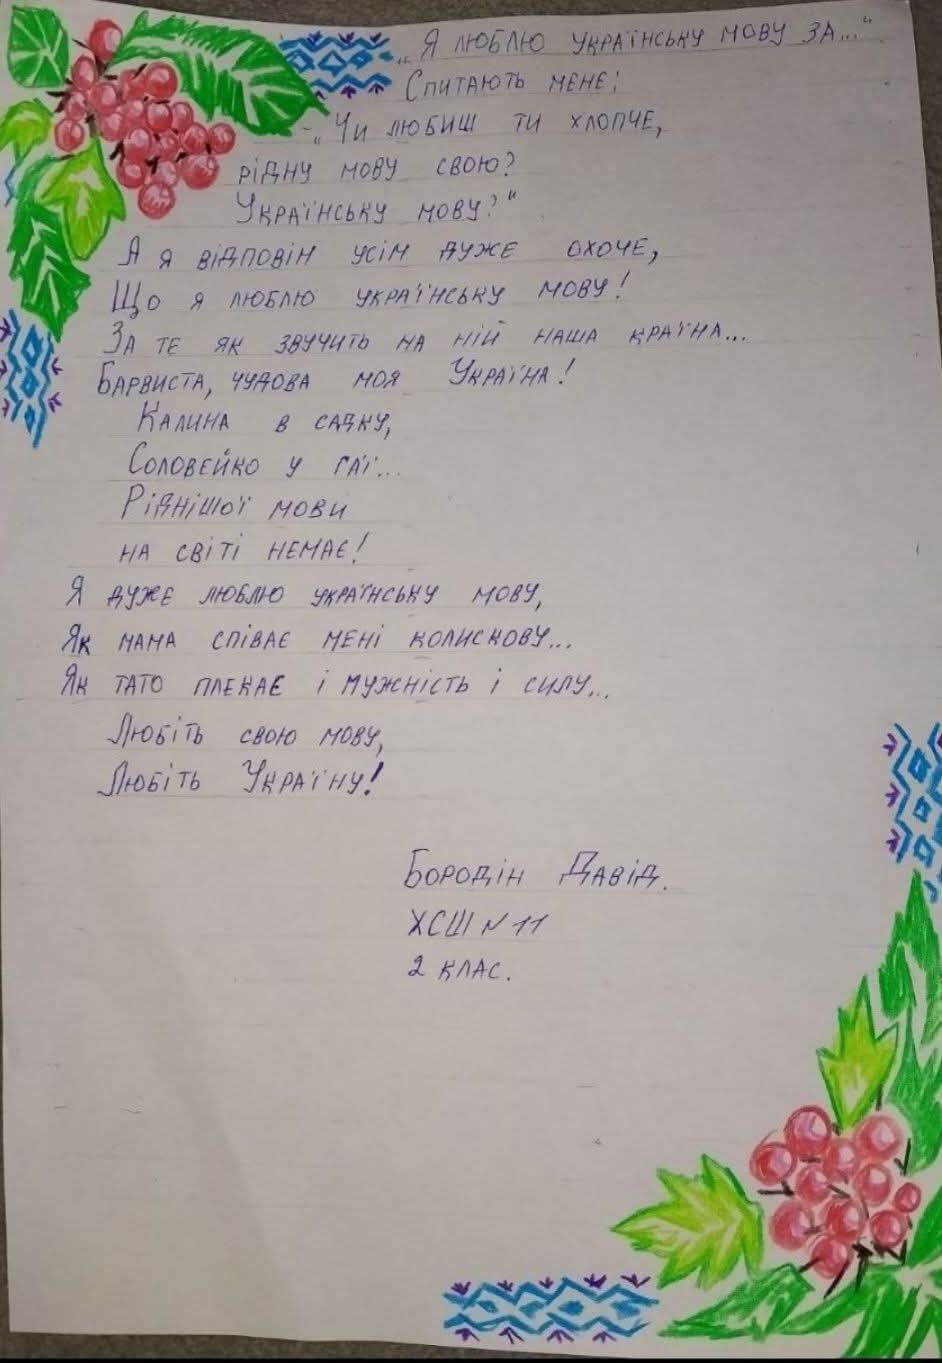 „Я люблю українську мову за..."
Спитають мене:
- „Чи любиш ти хлопче,
рідну мову свою?
Українську мову?"
А я відповін усім дуже охоче,
Що я люблю українську мову!
За те як звучить на ній наша країна...
Барвиста, чудова моя Україна!
Калина в садку,
Соловейко у гаї...
Ріднішої мови
на світі немає!
Я дуже люблю українську мову,
Як мама співає мені колискову...
Як тато плекає і мужність і силу...
Любіть свою мову,
Любіть Україну!
Бородін Давід.
ХСШ № 11
2 клас.